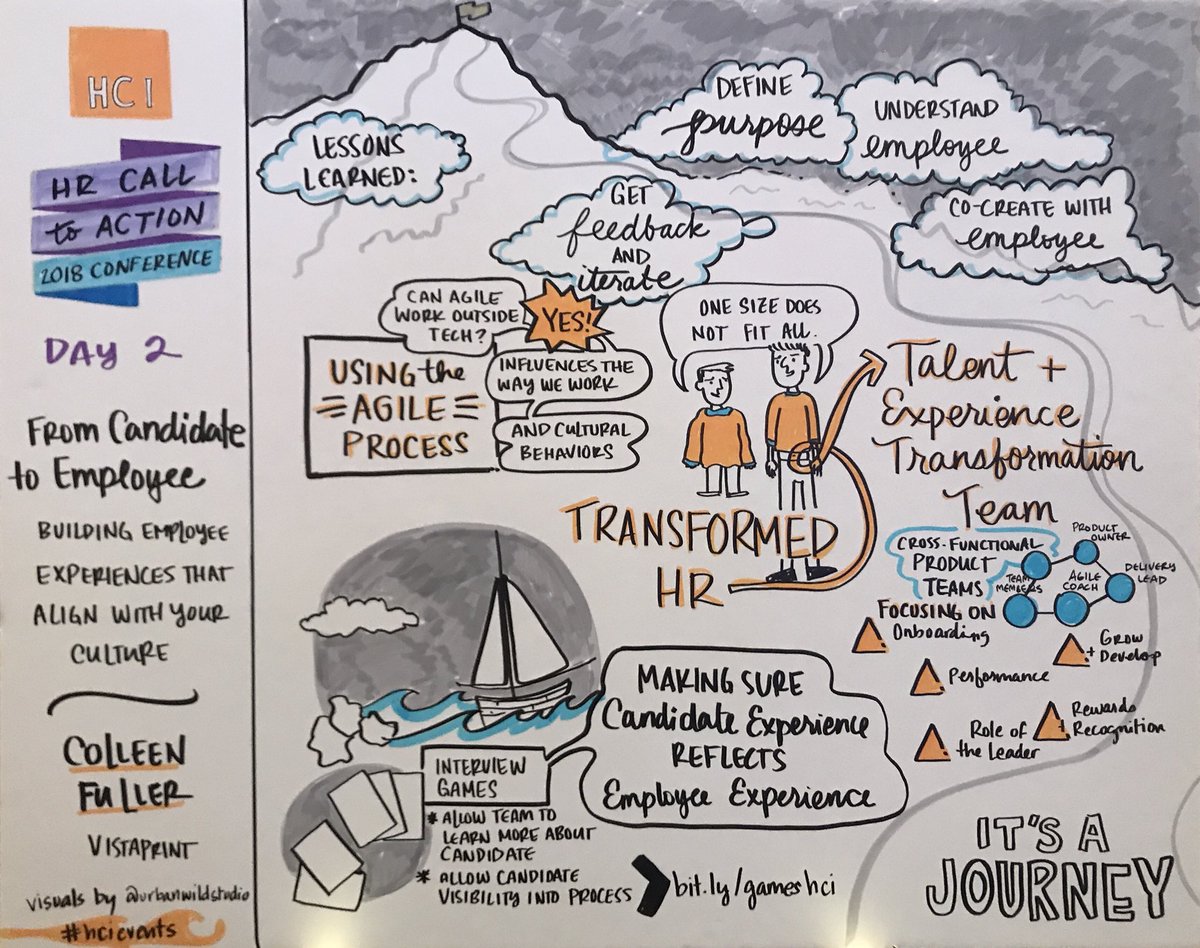 HCI
HR CALL
to ACTION
2018 CONFERENCE
DAY 2
FROM Candidate
to Employee
BUILDING EMPLOYEE
EXPERIENCES THAT
ALIGN WITH YOUR
CULTURE
COLLEEN
FULLER
VISTAPRINT
visuals by @urbanwildstudio
#hcievents
LESSONS
LEARNED:
DEFINE
purpose
UNDERSTAND
employee
GET
feedback
AND
iterate
CO-CREATE WITH
employee
CAN AGILE
WORK OUTSIDE
TECH?
YES!
USING the
AGILE
PROCESS
INFLUENCES THE
WAY WE WORK
AND CULTURAL
BEHAVIORS
ONE SIZE DOES
NOT FIT ALL.
TRANSFORMED
HR
Talent +
Experience
Transformation
Team
CROSS-FUNCTIONAL
PRODUCT
TEAMS
PRODUCT
OWNER
TEAM
MEMBERS
AGILE
COACH
DELIVERY
LEAD
FOCUSING ON
Onboarding
Grow
+ Develop
Performance
Rewards
+ Recognition
Role of
the Leader
MAKING SURE
Candidate Experience
REFLECTS
Employee Experience
INTERVIEW
GAMES
* ALLOW TEAM TO
LEARN MORE ABOUT
CANDIDATE
* ALLOW CANDIDATE
VISIBILITY INTO PROCESS
bit.ly/gameshci
IT'S A
JOURNEY